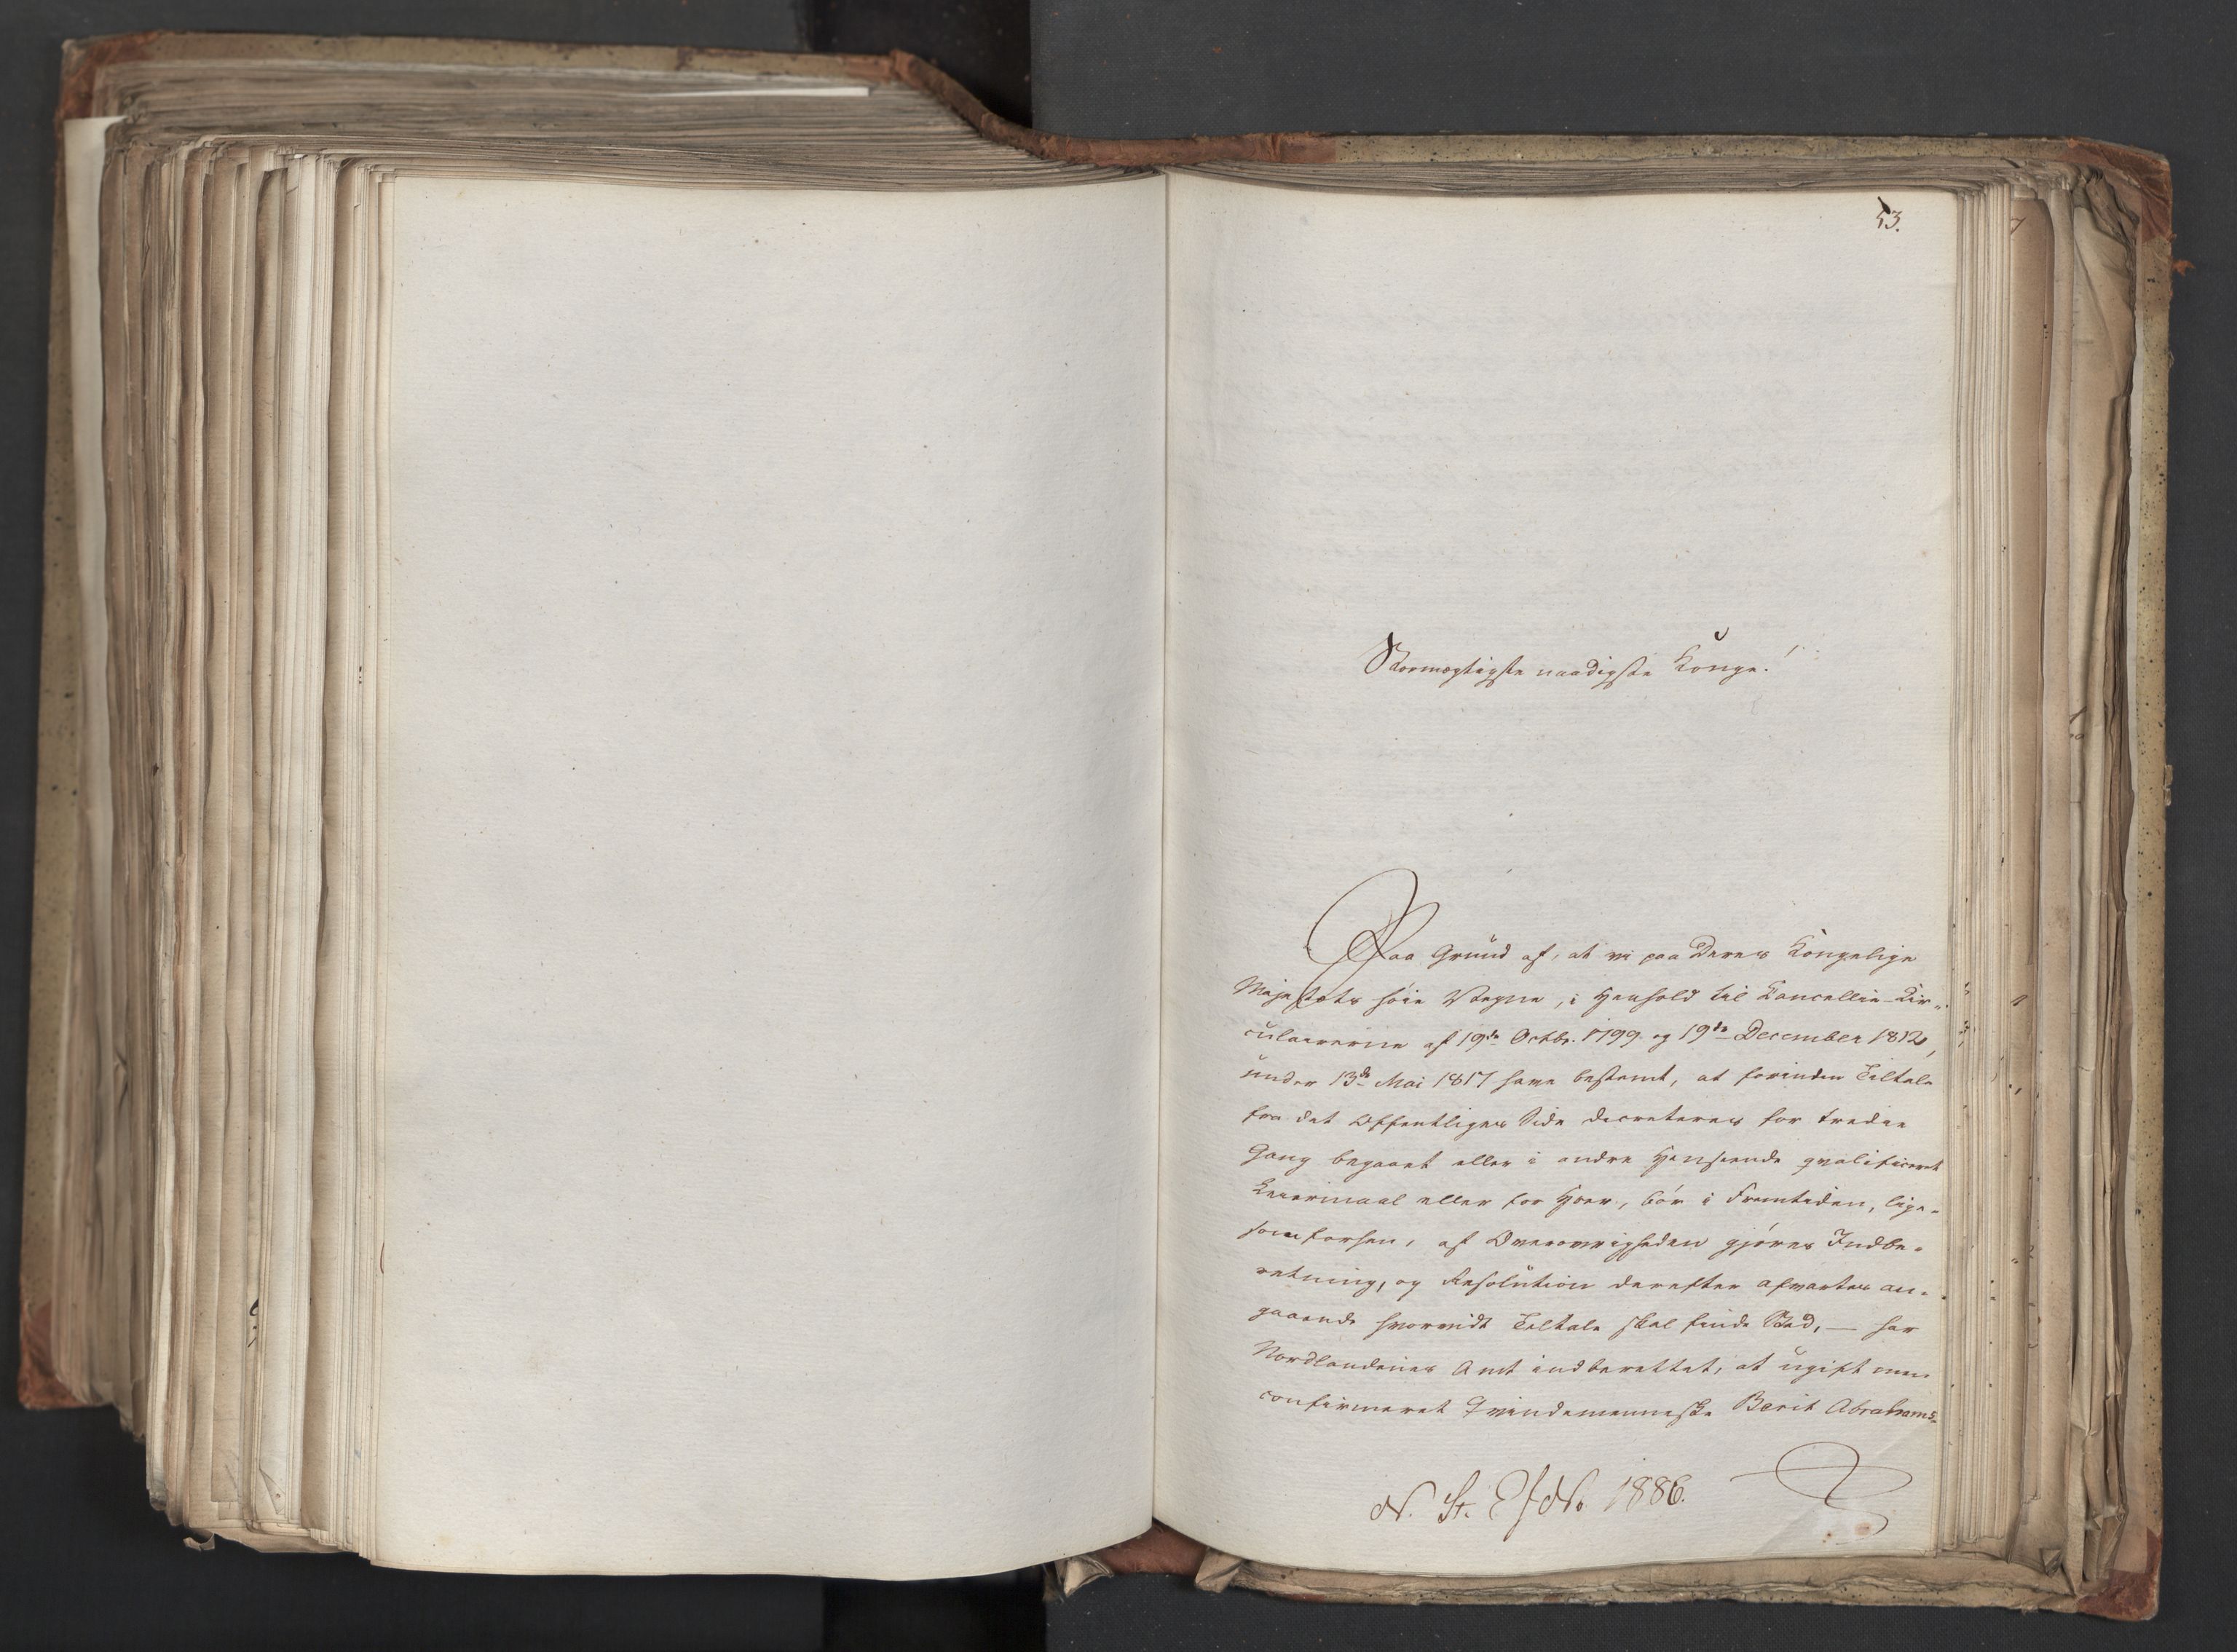 53.
Stormægtigste naadigste Konge!
Paa Grund af, at vi paa Deres Kongelige
Majestæts høie Vegne, i Henhold til Cancellie-Cir-
culairerne af 19de Octbr. 1799 og 19de December 1812,
under 13de Mai 1817 have bestemt, at forinden Tiltale
fra det Offentliges Side decreteres for tredie
Gang begaaet eller i andre Henseende qvalificeret
Leiermaal eller for Hoer, bør i Fremtiden, lige-
som forhen, af Øvrigheden gjøres Indbe-
retning, og Resolution derefter afvartes an-
gaaende hvorvidt Tiltale skal finde Sted, — har
Nordlandenes Amt indberettet, at ugift men
confirmeret Qvindemenneske Berit Abrahams-
N. St. Ef No. 1886.